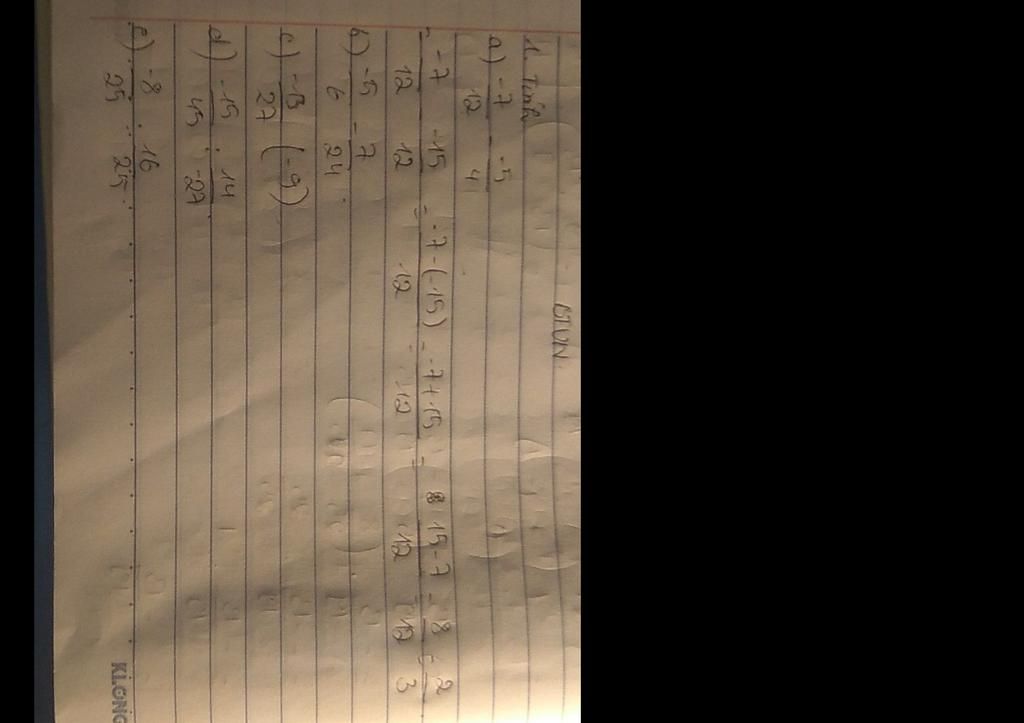 BTVN
1. Tính
a) -7/12 - -5/4
= -7/12 - -15/12 = -7-(-15)/12 = -7+15/12 = 15-7/12 = 8/12 = 2/3
b) -5/6 - 7/24
c) -13/27 (-9)
d) -15/45 : 14/-27
e) -8/25 : 16/25
KLONG